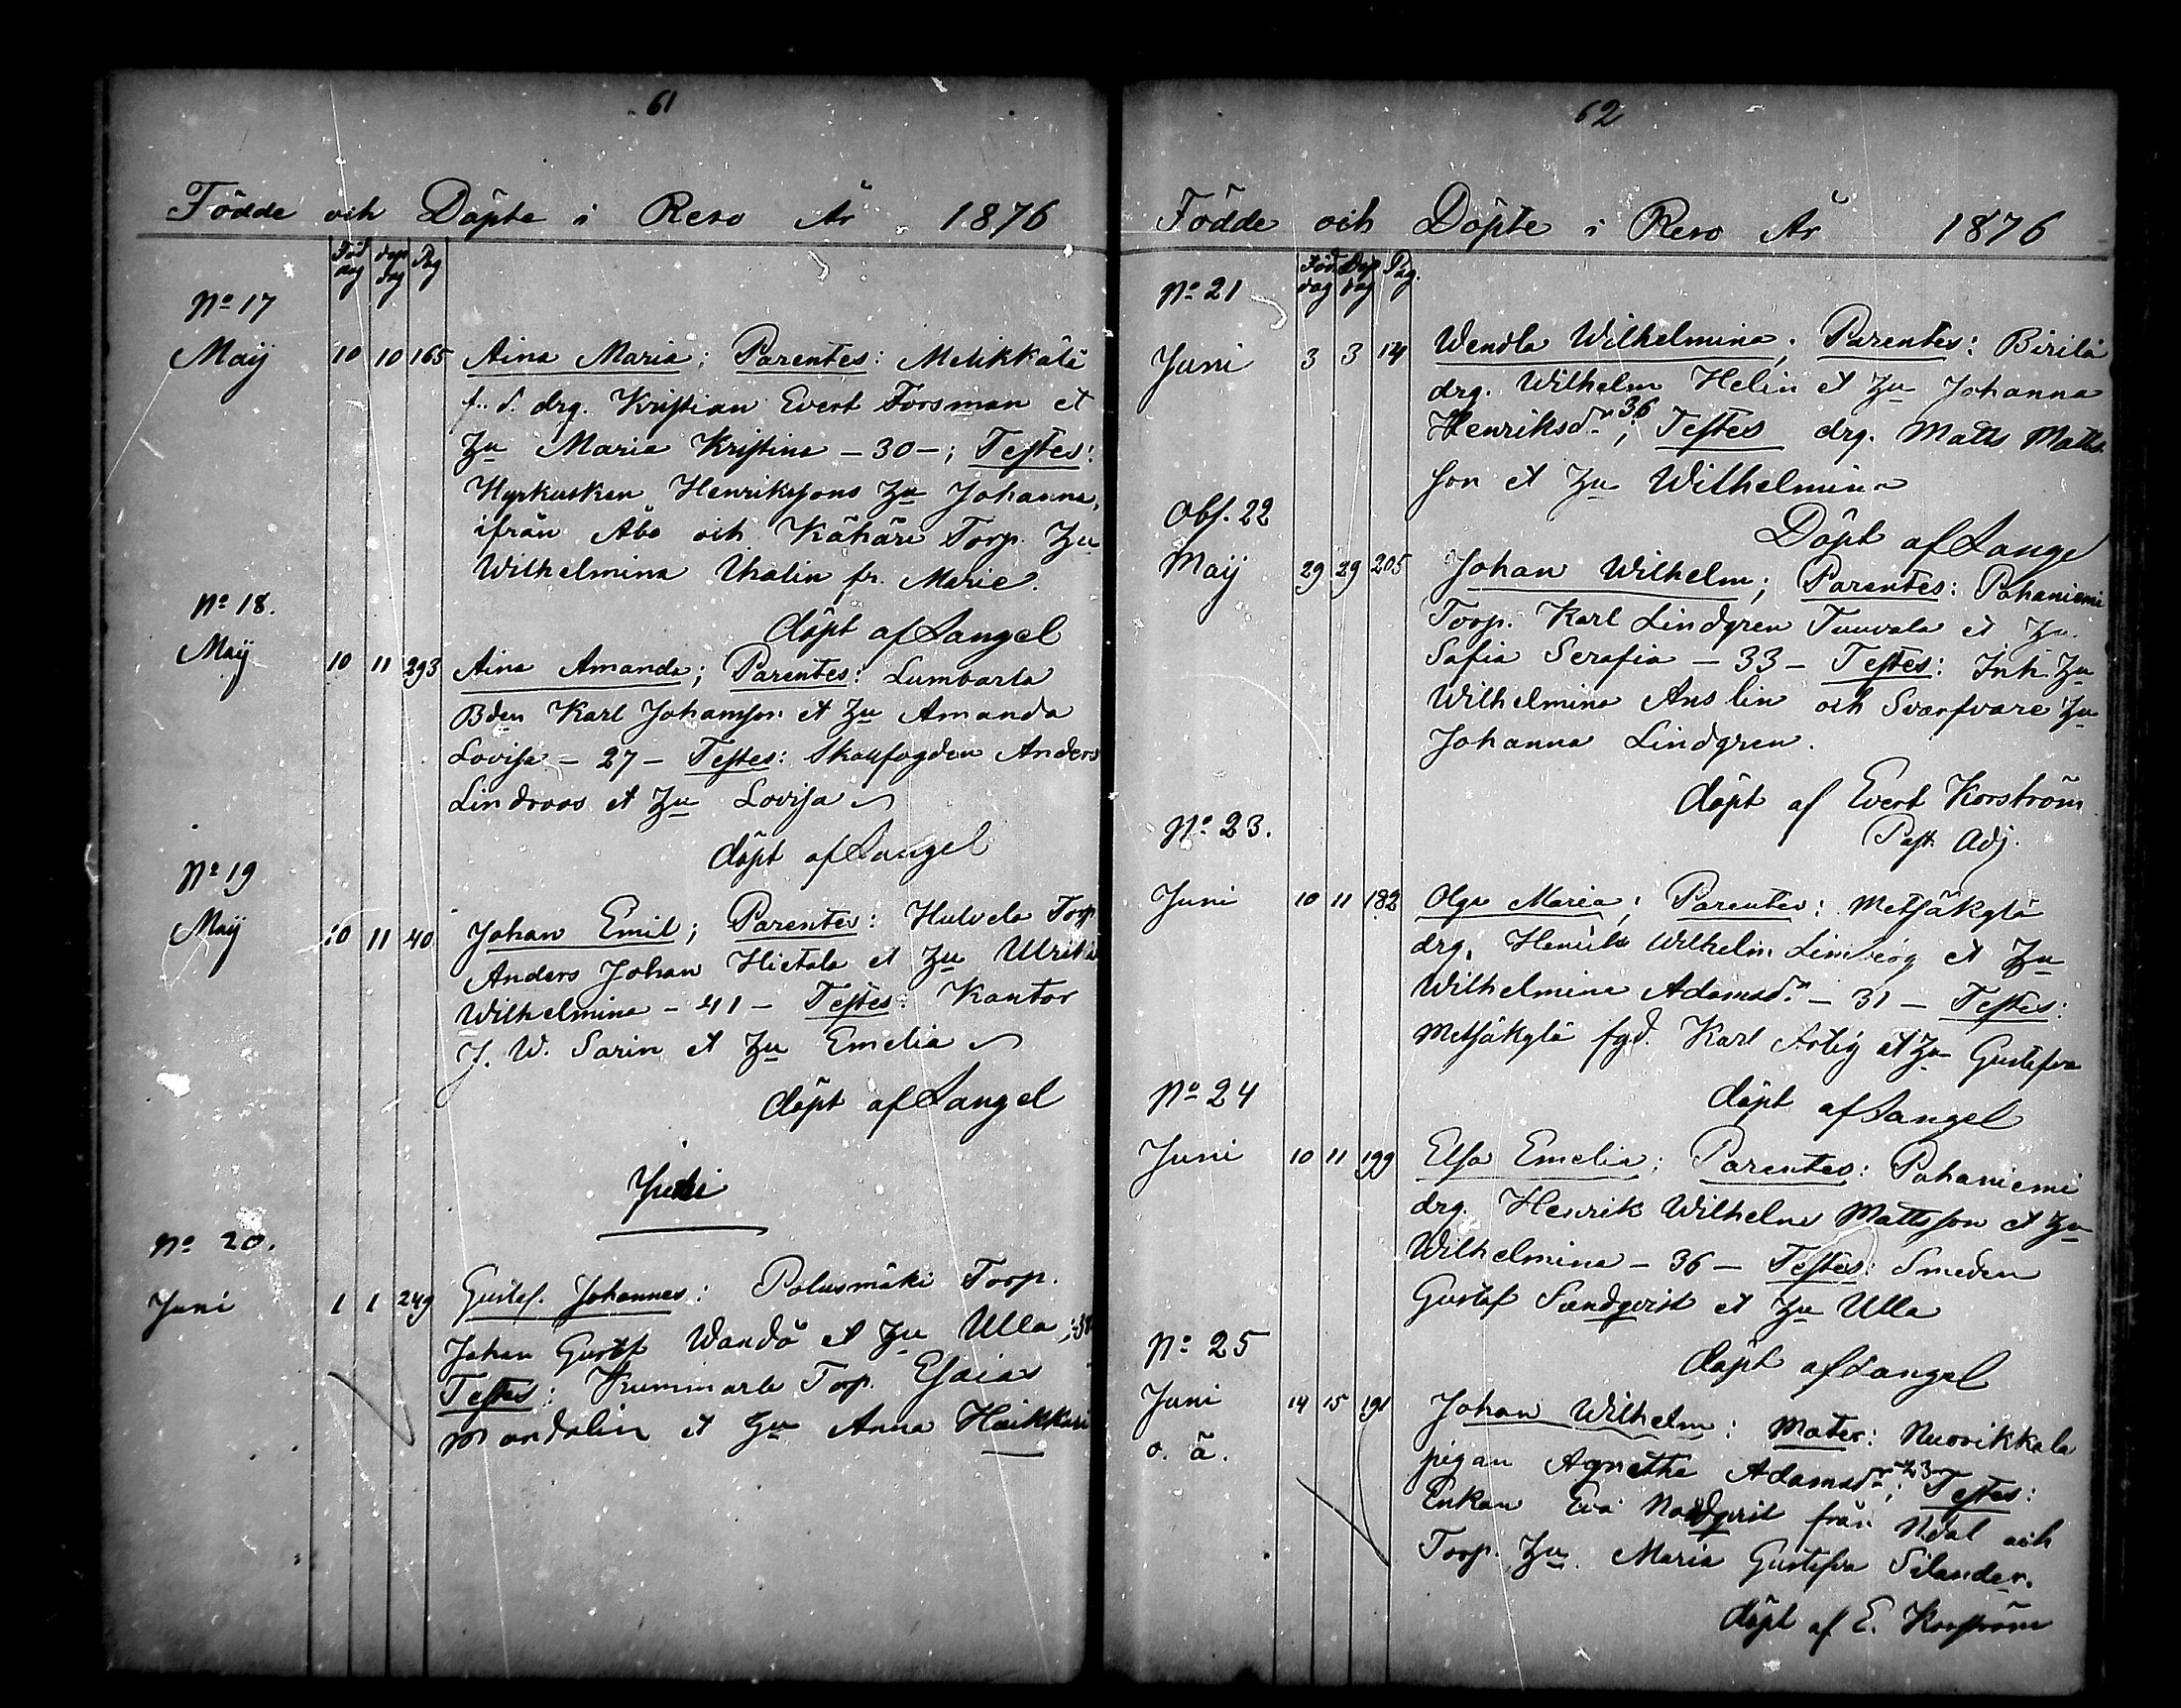 61
Födde och Döpte i Reso År 1876
Föd dag döp dag Pag
No 17
Maij 10 10 165 Aina Maria; Parentes: Melikkälä
f. d. drg. Kristian Evert Forsman et
Hu Maria Kristina - 30 -; Testes:
Hyrkusken Henrikssons Hu Johanna,
ifrån Åbo och Kähäri Torp. Hu
Wilhelmina Thalin fr. Marie.
döpt af Langel
No 18.
Maij 10 11 293 Aina Amanda; Parentes: Lumbarla
Bden Karl Johansson et Hu Amanda
Lovisa - 27 - Testes: Skallfogden Anders
Lindroos et Hu Lovisa
döpt af Langel
No 19
Maij 10 11 40 Johan Emil; Parentes: Hulvela Torp.
Anders Johan Hietala et Hu Ulrika
Wilhelmina - 41 - Testes: Kantor
J. W. Sarin et Hu Emelia
döpt af Langel
Juni
No 20.
Juni 1 1 249 Gustaf Johannes: Polusmäki Torp.
Johan Gustf Wandö et Hu Ulla;
Testes: Kummarla Torp. Esaias
Mandelin et Hu Anna Haikkari
62
Födde och Döpte i Reso År 1876
Föd. dag Döp dag Pag.
No 21
Juni 3 3 14 Wendla Wilhelmina; Parentes: Birilä
drg. Wilhelm Helin et Hu Johanna
Henriksdr 36; Testes drg. Matts Matts
son et Hu Wilhelmina
Döpt af Lange
Obs. 22
Maij 29 29 205 Johan Wilhelm; Parentes: Pahaniemi
Torp. Karl Lindgren Tuuvala et Hu
Sofia Serafia - 33 - Testes: Inh. Hu
Wilhelmina Anslin och Svarfvare Hu
Johanna Lindgren.
döpt af Evert Korström
Past. Adj.
No 23.
Juni 10 11 182 Olga Maria; Parentes: Metsäkylä
drg. Henrik Wilhelm Limberg et Hu
Wilhelmina Adamsdr - 31 - Testes:
Metsäkylä fgd. Karl Artig et Hu Gustafva
döpt af Langel
No 24
Juni 10 11 199 Elsa Emelia: Parentes: Pahaniemi
drg. Henrik Wilhelm Mattsson et Hu
Wilhelmina - 36 - Testes: Smeden
Gustaf Sandqvist et Hu Ulla
döpt af Langel
No 25
Juni 14 15 191 Johan Wilhelm: Mater: Nuorikkala
o. ä. pigan Agnetha Adamsdr 23; Testes:
Enkan Eva Nordqvist från Ndal och
Torp. Hu Maria Gustafva Silander.
döpt af E. Korström